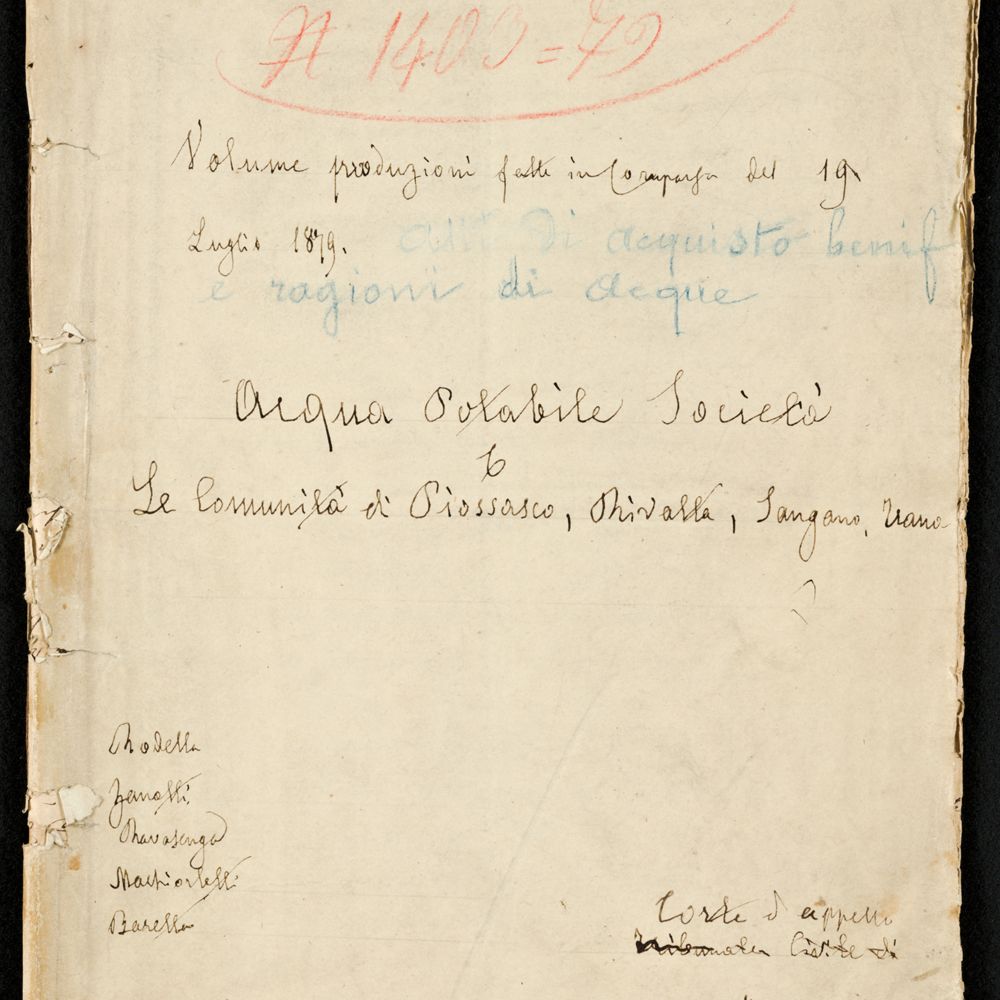 N 1403=79
Volume produzioni fatte in Comparsa del 19
Luglio 1879.
atti di acquisto benif
e ragioni di acque
Acqua Potabile Società
Le Comunità di Piossasco, Rivalta, Sangano, Trana
Rodella
Zanotti
Ravasenga
Machiorletti
Barella
Corte d'appello
Tribunale Civile di